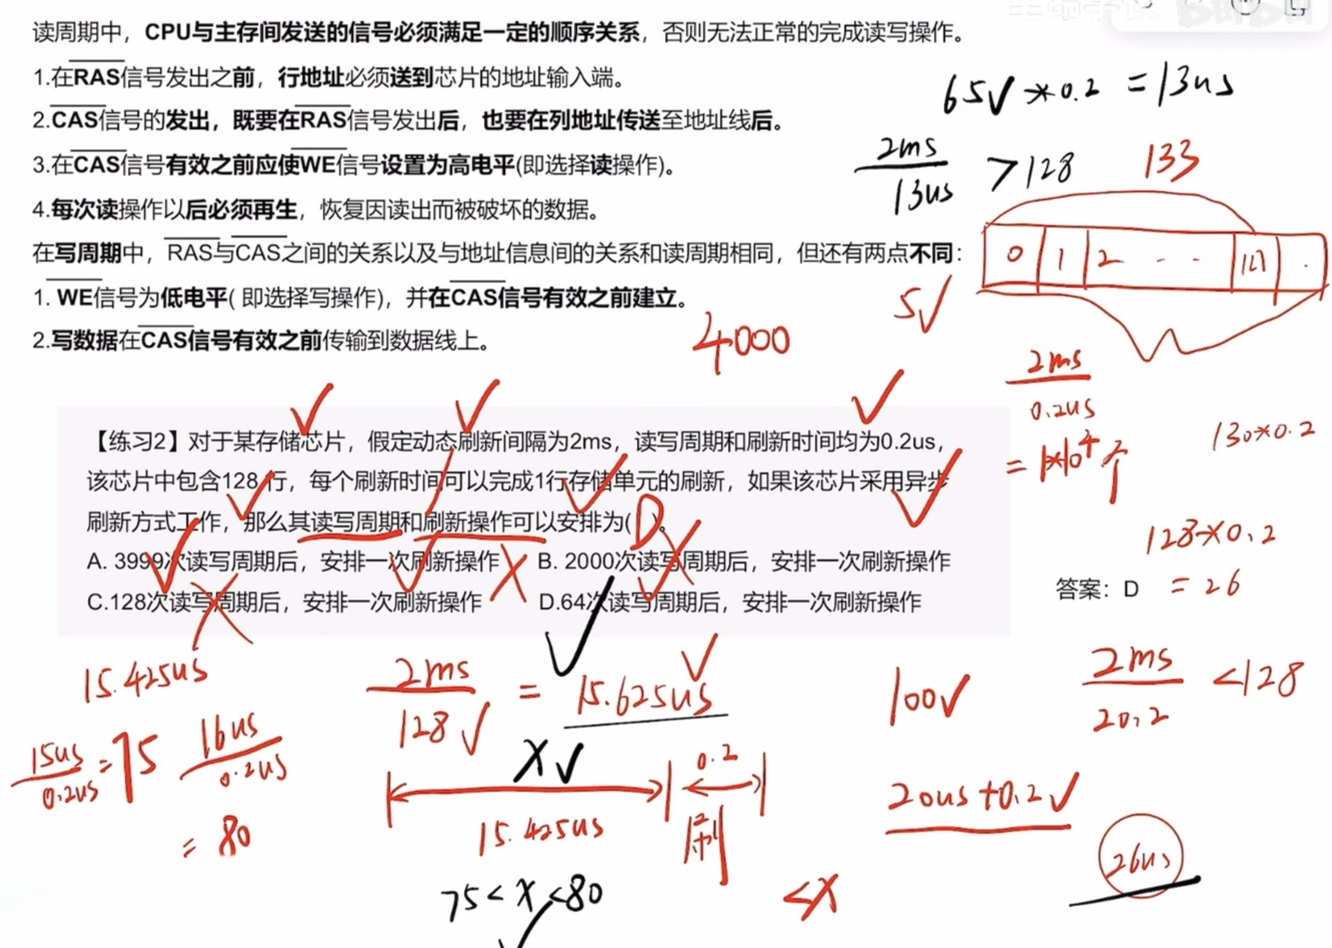 读周期中，CPU与主存间发送的信号必须满足一定的顺序关系，否则无法正常的完成读写操作。
1.在RAS信号发出之前，行地址必须送到芯片的地址输入端。
2.CAS信号的发出，既要在RAS信号发出后，也要在列地址传送至地址线后。
3.在CAS信号有效之前应使WE信号设置为高电平(即选择读操作)。
4.每次读操作以后必须再生，恢复因读出而被破坏的数据。
在写周期中，RAS与CAS之间的关系以及与地址信息间的关系和读周期相同，但还有两点不同：
1. WE信号为低电平( 即选择写操作)，并在CAS信号有效之前建立。
2.写数据在CAS信号有效之前传输到数据线上。
65 * 0.2 = 13us
2ms
13us
> 128
133
0 1 2 - - 127 .
5
4000
2ms
0.2us
= 1*10^4 个
130*0.2
【练习2】对于某存储芯片，假定动态刷新间隔为2ms，读写周期和刷新时间均为0.2us，
该芯片中包含128行，每个刷新时间可以完成1行存储单元的刷新，如果该芯片采用异步
刷新方式工作，那么其读写周期和刷新操作可以安排为( D )。
A. 3999次读写周期后，安排一次刷新操作
B. 2000次读写周期后，安排一次刷新操作
C.128次读写周期后，安排一次刷新操作
D.64次读写周期后，安排一次刷新操作
128*0.2
= 26
答案：D
15.425us
2ms
128
= 15.625us
100
2ms
20.2
< 128
15us
0.2us
= 75
16us
0.2us
= 80
X
0.2
15.425us
刷
20us + 0.2
26us
75 < X < 80
< X